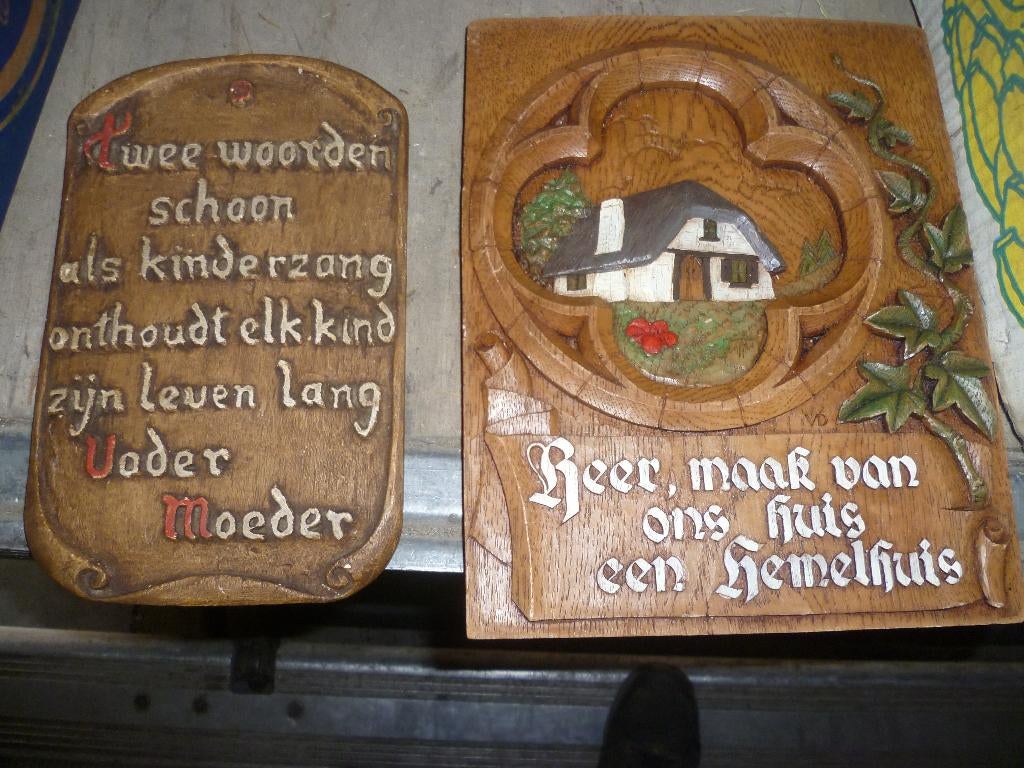 Twee woorden
schoon
als kinderzang
onthoudt elk kind
zijn leven lang
Vader
Moeder
Heer, maak van
ons huis
een Hemelhuis